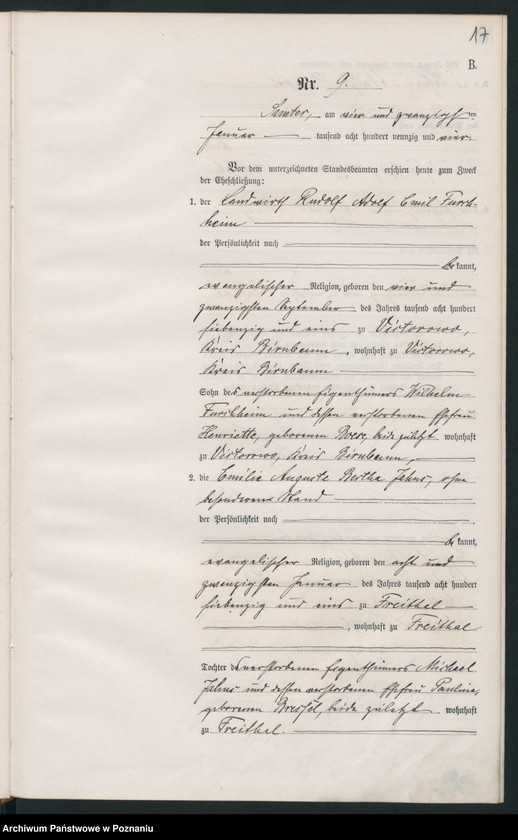 17
B.
Nr. 9.
Samter, am vier und zwanzigsten
Januar tausend acht hundert neunzig und vier.
Vor dem unterzeichneten Standesbeamten erschien heute zum Zweck
der Eheschließung:
1. der Landwirth Rudolf Adolf Emil Furch-
heim
der Persönlichkeit nach
be kannt,
evangelischer Religion, geboren den vier und
zwanzigsten September des Jahres tausend acht hundert
siebenzig und eins zu Victorowo,
Kreis Birnbaum, wohnhaft zu Victorowo,
Kreis Birnbaum
Sohn des verstorbenen Eigenthümers Wilhelm
Furchheim und dessen verstorbenen Ehefrau
Henriette, geborenen, beide zuletzt wohnhaft
zu Victorowo, Kreis Birnbaum,
2. die Emilie Auguste Bertha Jahns, ohne
besonderen Stand
der Persönlichkeit nach
be kannt,
evangelischer Religion, geboren den acht und
zwanzigsten Januar des Jahres tausend acht hundert
siebenzig und eins zu Freithal
, wohnhaft zu Freithal
Tochter des verstorbenen Eigenthümers Michael
Jahns und dessen verstorbenen Ehefrau Pauline,
geborenen, beide zuletzt wohnhaft
zu Freithal.
Archiwum Państwowe w Poznaniu